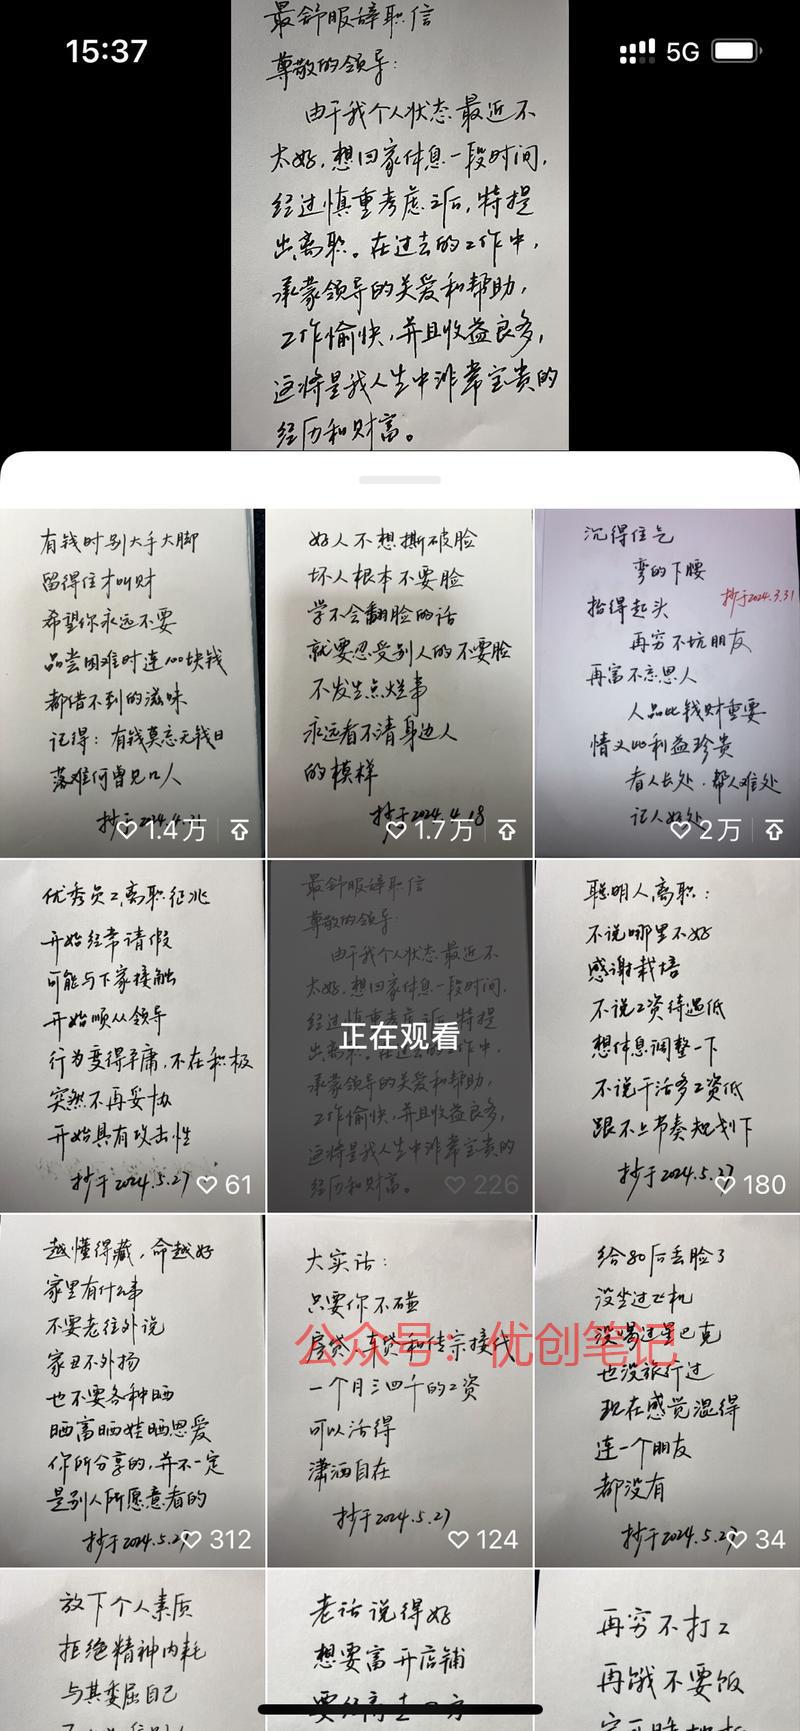 15:37
5G
最舒服辞职信
尊敬的领导:
由于我个人状态最近不
太好,想回家休息一段时间,
经过慎重考虑之后,特提
出离职。在过去的工作中,
承蒙领导的关爱和帮助,
工作愉快,并且收益良多,
这将是我人生中非常宝贵的
经历和财富。
有钱时别大手大脚
留得住才叫财
希望你永远不要
品尝困难时连100块钱
都借不到的滋味
记得:有钱莫忘无钱日
落难何曾见口人
抄于2024.4.21
1.4万
好人不想撕破脸
坏人根本不要脸
学不会翻脸的话
就要忍受别人的不要脸
不发生点烂事
永远看不清身边人
的模样
抄于2024.4.18
1.7万
沉得住气
弯的下腰
抬得起头
抄于2024.3.31
再穷不坑朋友
再富不忘恩人
人品比钱财重要
情义比利益珍贵
看人长处.帮人难处
记人好处
2万
优秀员工离职征兆
开始经常请假
可能与下家接触
开始顺从领导
行为变得平庸,不在积极
突然不再妥协
开始具有攻击性
抄于2024.5.27
61
最舒服辞职信
尊敬的领导:
由于我个人状态最近不
太好,想回家休息一段时间,
经过慎重考虑之后,特提
出离职。在过去的工作中,
承蒙领导的关爱和帮助,
工作愉快,并且收益良多,
这将是我人生中非常宝贵的
经历和财富。
正在观看
226
聪明人离职:
不说哪里不好
感谢栽培
不说工资待遇低
想休息调整一下
不说干活多工资低
跟不上节奏规划下
抄于2024.5.27
180
越懂得藏,命越好
家里有什么事
不要老往外说
家丑不外扬
也不要各种晒
晒富晒娃晒恩爱
你所分享的,并不一定
是别人所愿意看的
抄于2024.5.27
312
大实话:
只要你不碰
房贷、车贷和传宗接代
一个月三四千的工资
可以活得
潇洒自在
抄于2024.5.27
124
给80后丢脸了
没坐过飞机
没喝过星巴克
也没旅行过
现在感觉混得
连一个朋友
都没有
抄于2024.5.27
34
公众号:优创笔记
放下个人素质
拒绝精神内耗
与其委屈自己
老话说得好
想要富开店铺
再穷不打工
再饿不要饭